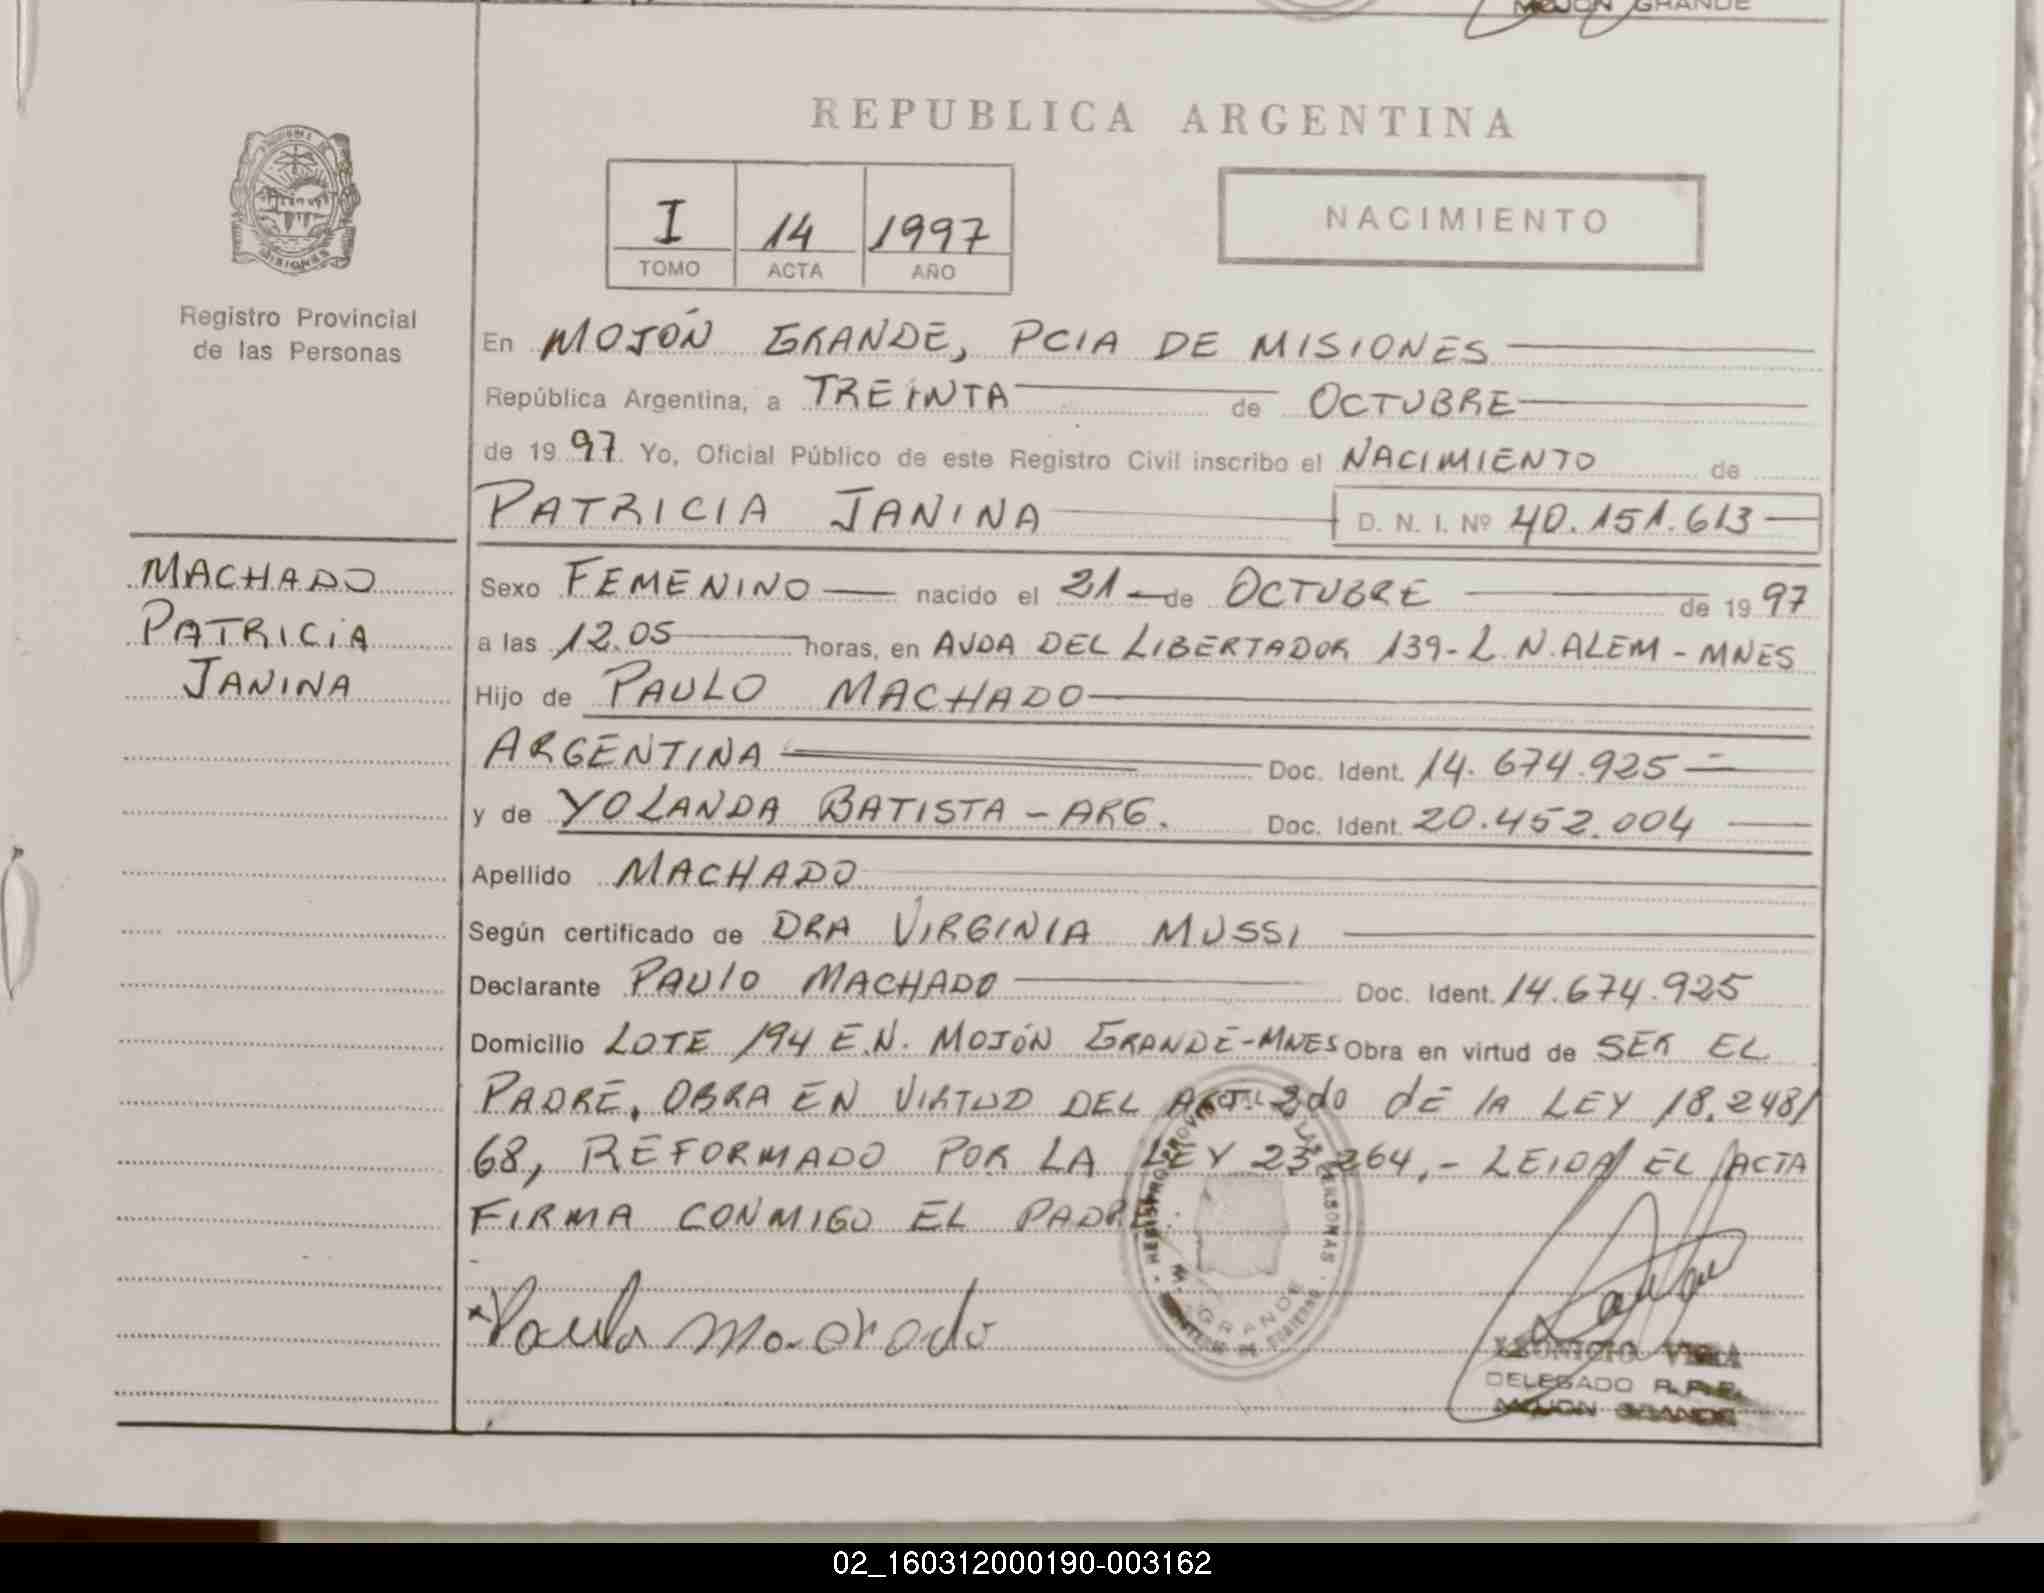 MOJON GRANDE
REPUBLICA ARGENTINA
I 14 1997
TOMO ACTA AÑO
NACIMIENTO
MISIONES
Registro Provincial
de las Personas
En MOJÓN GRANDE, PCIA DE MISIONES
República Argentina, a TREINTA de OCTUBRE
de 1997. Yo, Oficial Público de este Registro Civil inscribo el NACIMIENTO de
PATRICIA JANINA D. N. I. Nº 40.151.613
MACHADO
PATRICIA
JANINA
Sexo FEMENINO nacido el 21 de OCTUBRE de 1997
a las 12.05 horas, en AVDA DEL LIBERTADOR 139-L.N.ALEM - MNES
Hijo de PAULO MACHADO
ARGENTINA Doc. Ident. 14.674.925
y de YOLANDA BATISTA - ARG. Doc. Ident. 20.452.004
Apellido MACHADO
Según certificado de DRA VIRGINIA MUSSI
Declarante PAULO MACHADO Doc. Ident. 14.674.925
Domicilio LOTE 194 E.N. MOJÓN GRANDE-MNES Obra en virtud de SER EL
PADRE. OBRA EN VIRTUD DEL ART. 2do dE lA LEY 18.248/
68, REFORMADO POR LA LEY 23.264.- LEIDA EL ACTA
FIRMA CONMIGO EL PADRE
GRANDE
VIERA
DELEGADO R.P.P.
MOJON GRANDE
02_160312000190-003162